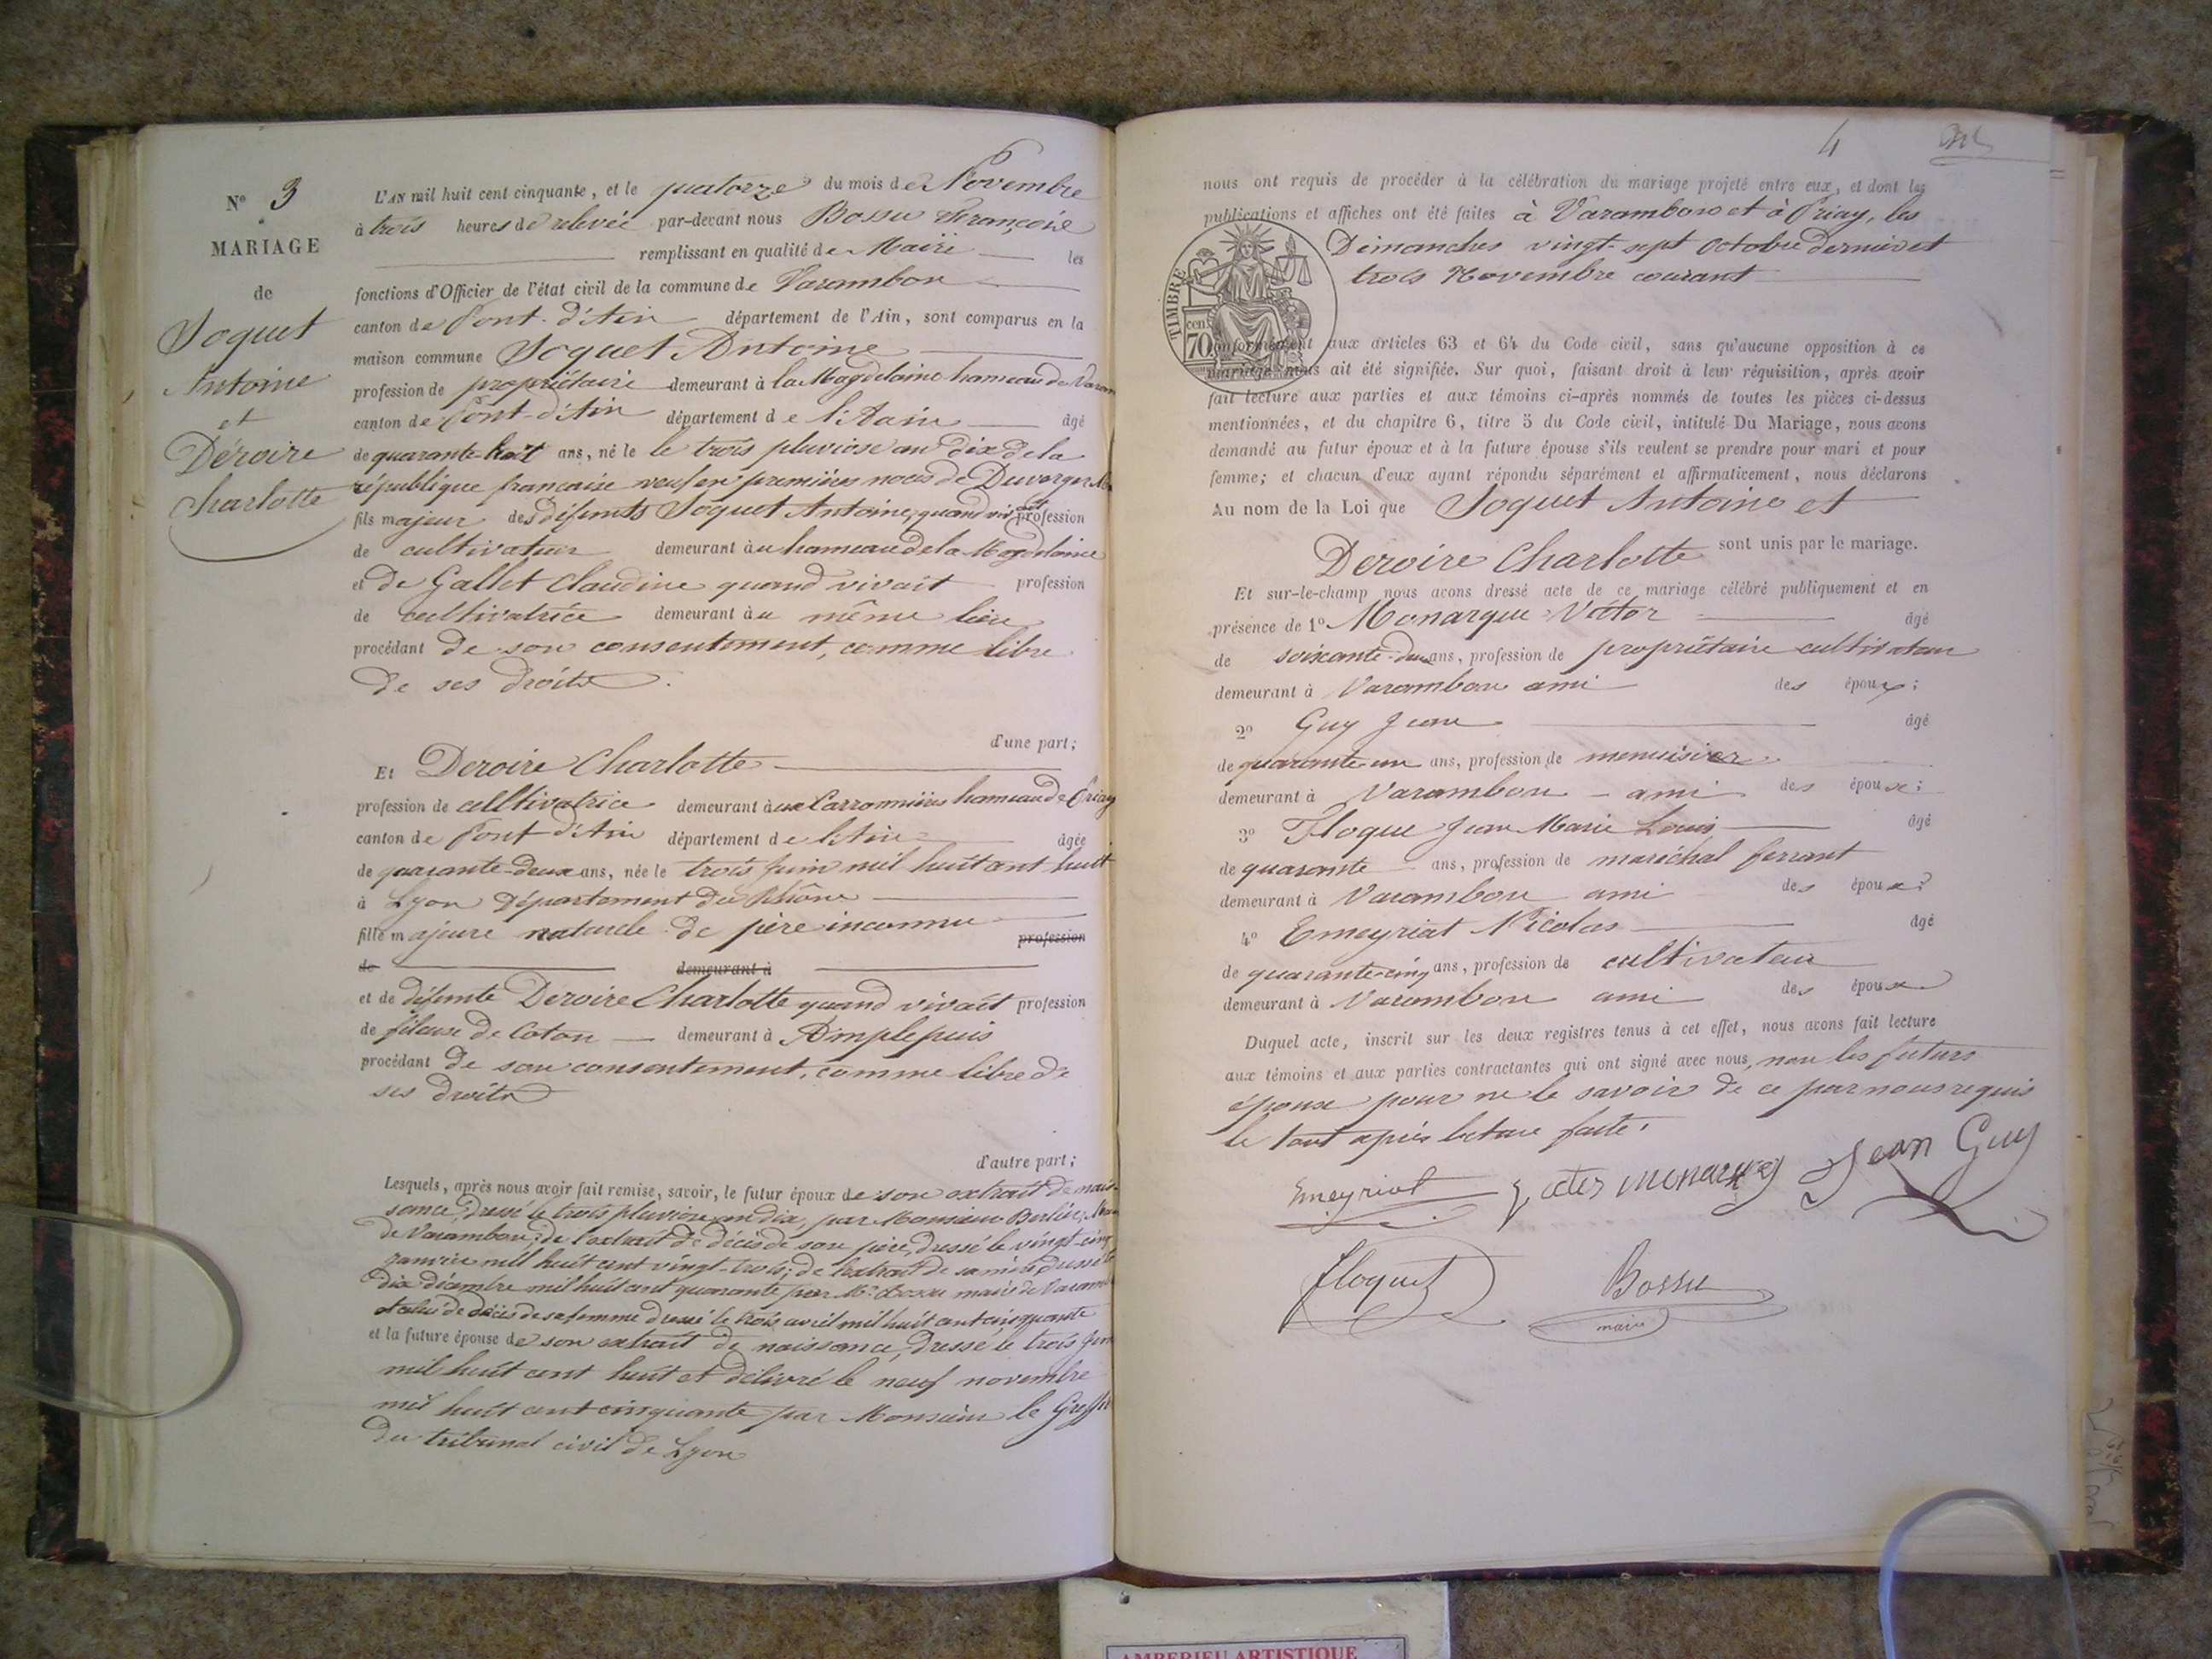 N° 3
MARIAGE
de
Joguet
Antoine
et
Déroire
Charlotte
L'AN mil huit cent cinquante, et le quatorze du mois de Novembre
à trois heures de relevée par-devant nous Bossu François
remplissant en qualité de Maire les
fonctions d'Officier de l'état civil de la commune de Varambon
canton de Pont-d'Ain département de l'Ain, sont comparus en la
maison commune Joguet Antoine
profession de propriétaire demeurant à la Magdelaine hameau de Varam
canton de Pont-d'Ain département de l'Ain âgé
de quarante-huit ans, né le le trois pluviose an dix de la
république française veuf en premières noces de Duverger
fils majeur des défunts Joguet Antoine, quand vivait profession
de cultivateur demeurant au hameau de la Magdelaine
et de Gallet Claudine quand vivait profession
de cultivatrice demeurant au même lieu
procédant de son consentement, comme libre
de ses droits
d'une part;
Et Deroire Charlotte
profession de cultivatrice demeurant aux Carronnières hameau de Priay
canton de Pont-d'Ain département de l'Ain âgée
de quarante-deux ans, née le trois juin mil huit cent huit
à Lyon Département du Rhône
fille majeure naturelle de père inconnu profession
de demeurant à
et de défunte Deroire Charlotte quand vivait profession
de fileuse de Coton demeurant à Amplepuis
procédant de son consentement, comme libre de
ses droits
d'autre part;
Lesquels, après nous avoir fait remise, savoir, le futur époux de son extrait de nais-
sance, dressé le trois pluviose an dix, par Monsieur Berlier,
de Varambon; de l'extrait de décès de son père, dressé le vingt-cinq
janvier mil huit cent vingt-trois; de l'extrait de sa mère dressé le
dix décembre mil huit cent quarante par Mr. Bossu maire de Varam
et celui de décès de sa femme dressé le trois avril mil huit cent cinquante
et la future épouse de son extrait de naissance, dressé le trois juin
mil huit cent huit et délivré le neuf novembre
mil huit cent cinquante par Monsieur le Greffi
du tribunal civil de Lyon
4
nous ont requis de procéder à la célébration du mariage projeté entre eux, et dont les
publications et affiches ont été faites à Varambon et à Priay, les
Dimanches vingt-sept octobre dernier et
trois Novembre courant
TIMBRE
70 cen
conformément aux articles 63 et 64 du Code civil, sans qu'aucune opposition à ce
mariage nous ait été signifiée. Sur quoi, faisant droit à leur réquisition, après avoir
fait lecture aux parties et aux témoins ci-après nommés de toutes les pièces ci-dessus
mentionnées, et du chapitre 6, titre 5 du Code civil, intitulé Du Mariage, nous avons
demandé au futur époux et à la future épouse s'ils veulent se prendre pour mari et pour
femme; et chacun d'eux ayant répondu séparément et affirmativement, nous déclarons
Au nom de la Loi que Joguet Antoine et
Deroire Charlotte sont unis par le mariage.
Et sur-le-champ nous avons dressé acte de ce mariage célébré publiquement et en
présence de 1° Monarque Victor âgé
de soixante-deux ans, profession de propriétaire cultivateur
demeurant à Varambon ami des époux;
2° Guy Jean âgé
de quarante-un ans, profession de menuisier
demeurant à Varambon - ami des époux;
3° Floque Jean Marie Louis âgé
de quarante ans, profession de maréchal ferrant
demeurant à Varambon ami des époux;
4° Emeyriat Nicolas âgé
de quarante-cinq ans, profession de cultivateur
demeurant à Varambon ami des époux
Duquel acte, inscrit sur les deux registres tenus à cet effet, nous avons fait lecture
aux témoins et aux parties contractantes qui ont signé avec nous, non les futurs
époux pour ne le savoir de ce par nous requis
le tout après lecture faite.
Emeyriat Victor Monarque Jean Guy
Floquet Bossu
maire
AMBERIEU ARTISTIQUE